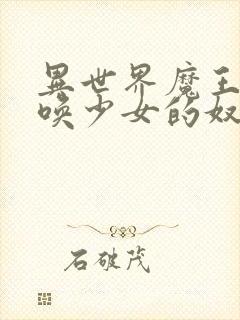 異世界魔王
喚少女的奴
石破茂